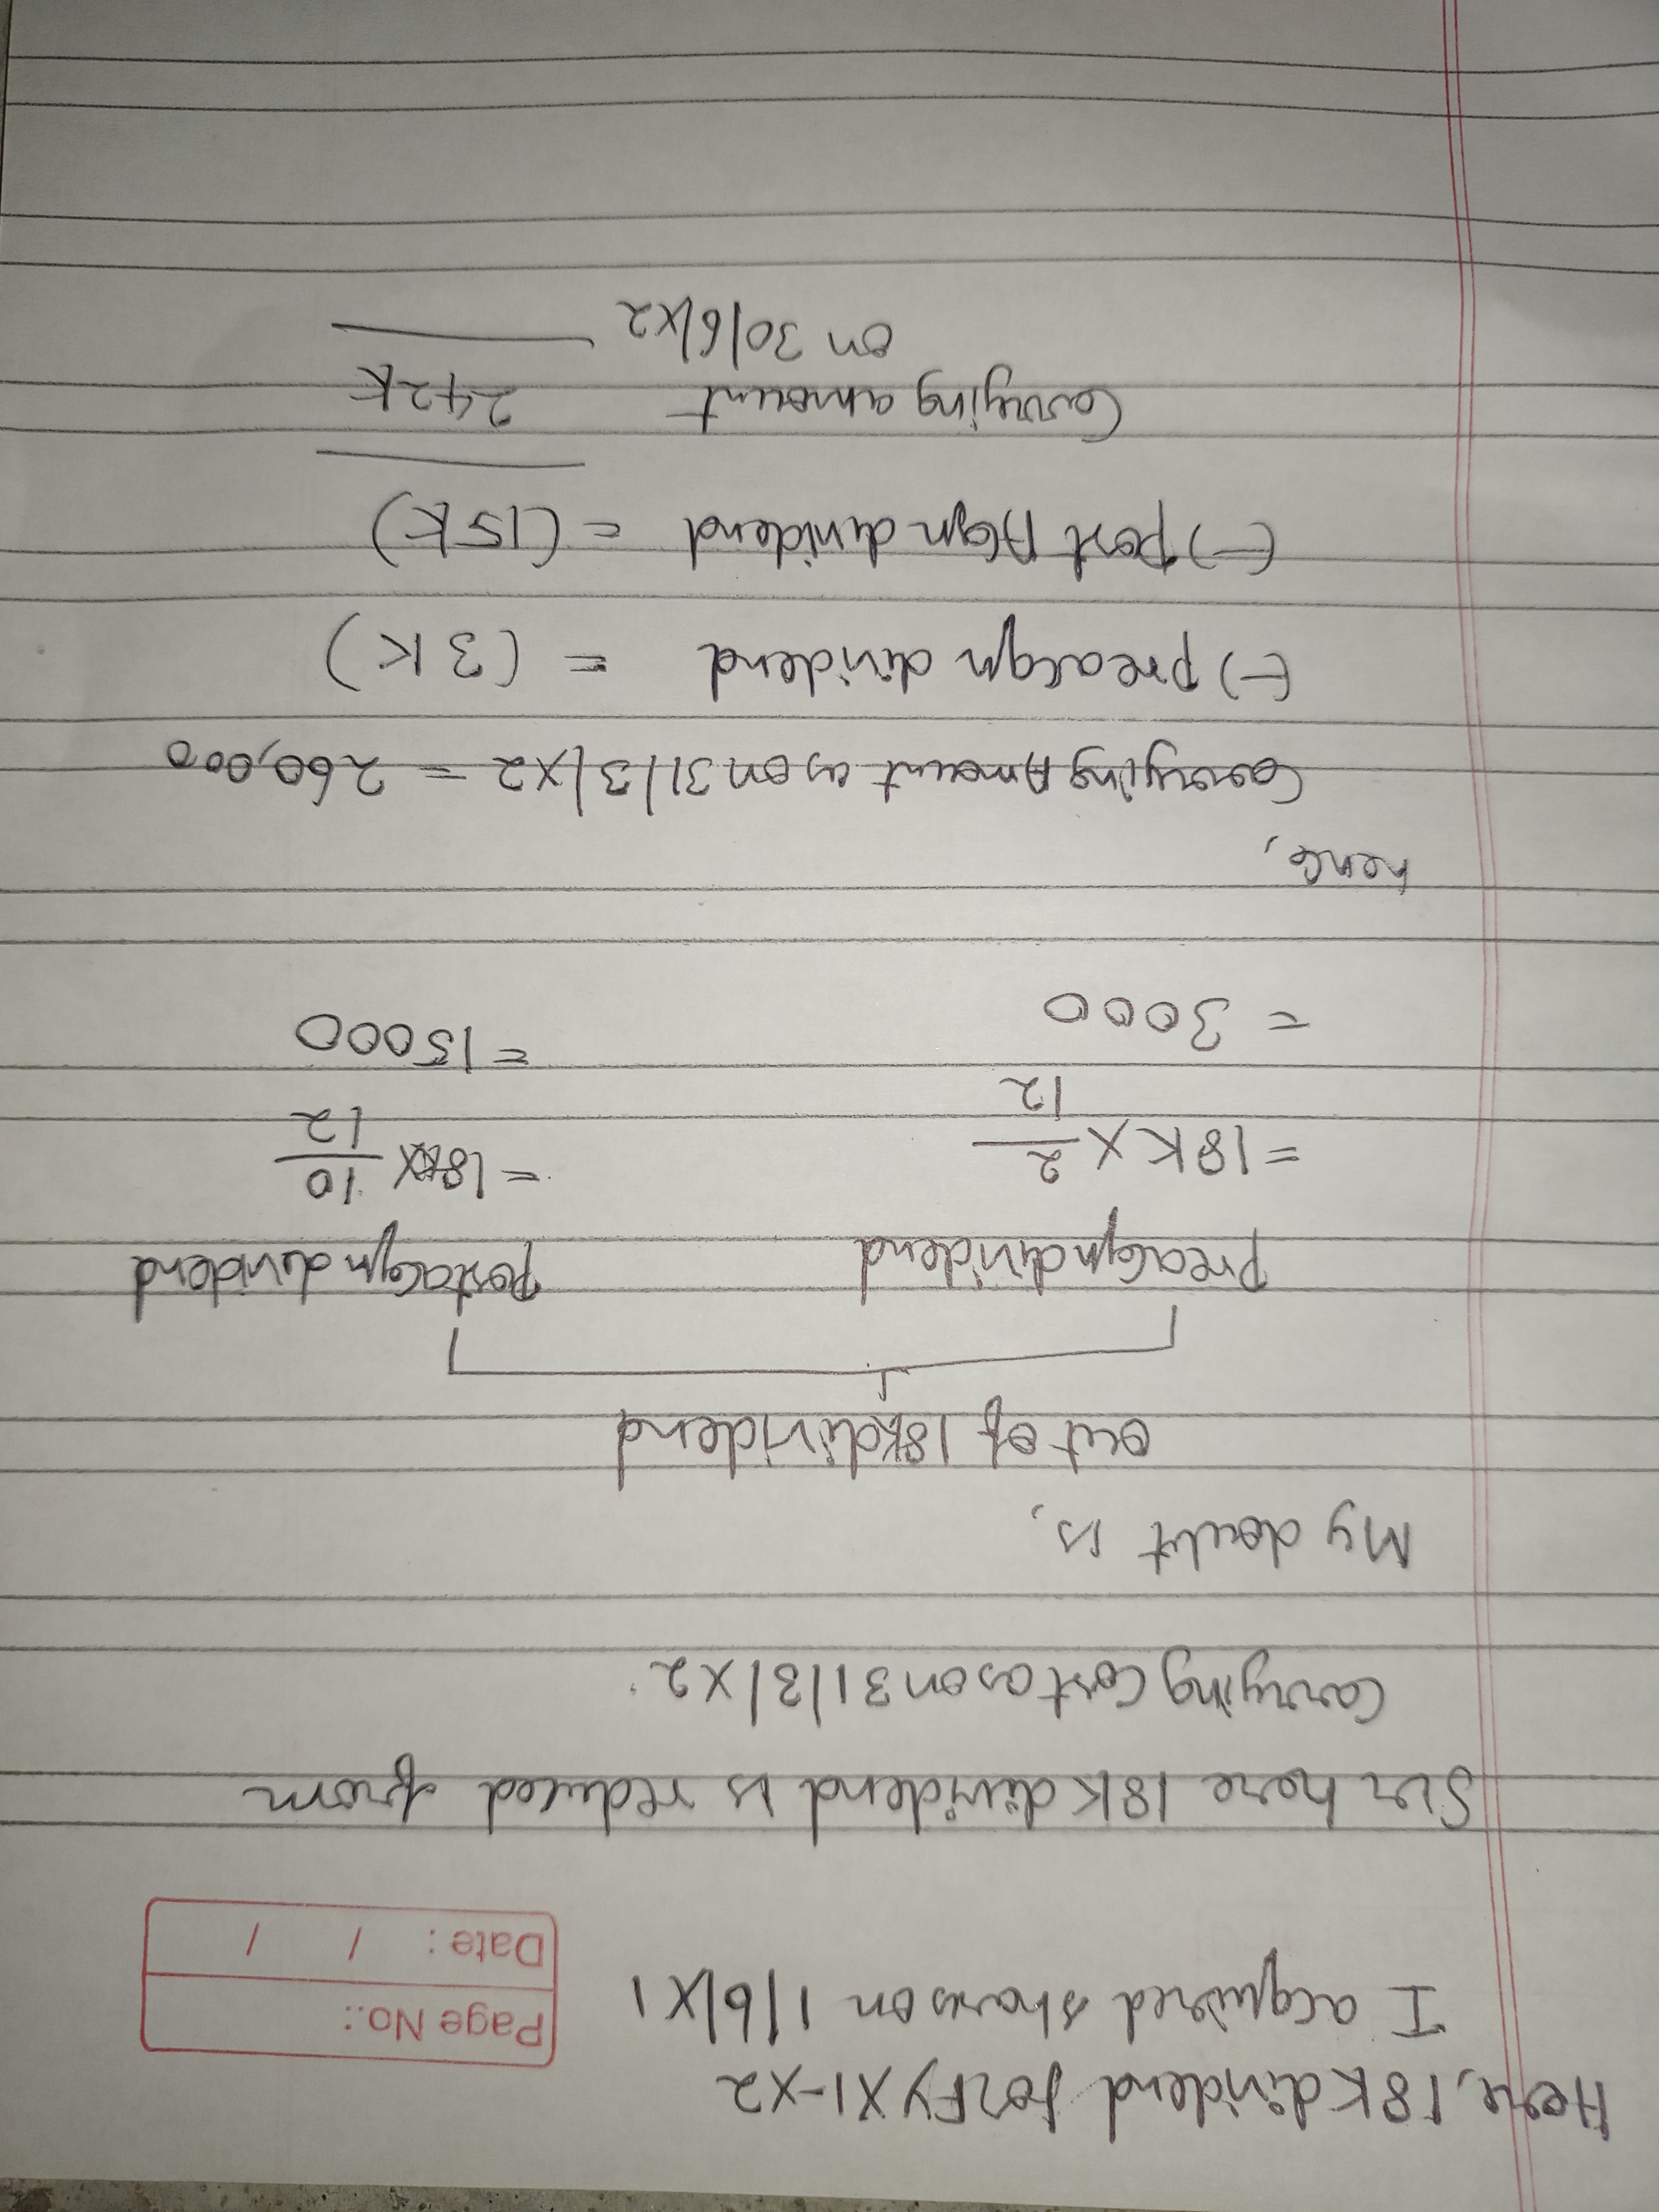 Here, 18K dividend for FY X1-X2
I acquired shares on 1/6/X1
Page No.:
Date: / /
Sir here 18K dividend is reduced from
Carrying Cost as on 31/3/X2.
My doubt is,
out of 18K dividend
Preacqn dividend Postacqn dividend
= 18K X 2/12 = 18K X 10/12
= 3000 = 15000
hence,
Carrying Amount as on 31/3/X2 = 260,000
(-) preacqn dividend = (3K)
(-) Post Acqn dividend = (15K)
Carrying amount 242K
on 30/6/X2